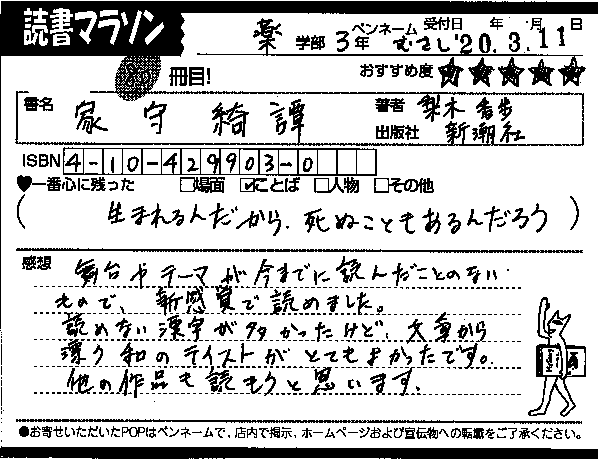 読書マラソン
薬 学部 3年 ペンネーム むさし 受付日 '20年.3.月11日
冊目! おすすめ度 ★★★★★
書名 家守綺譚 著者 梨木香歩
出版社 新潮社
ISBN 4-10-429903-0
♥一番心に残った □場面 ☑ことば □人物 □その他
(生まれるんだから、死ぬこともあるんだろう)
感想 舞台やテーマが今までに読んだことのない
もので、新感覚で読めました。
読めない漢字が多かったけど、文章から
漂う和のテイストがとてもよかったです。
他の作品も読もうと思います。
●お寄せいただいたPOPはペンネームで、店内で掲示、ホームページおよび宣伝物への転載をご了承ください。